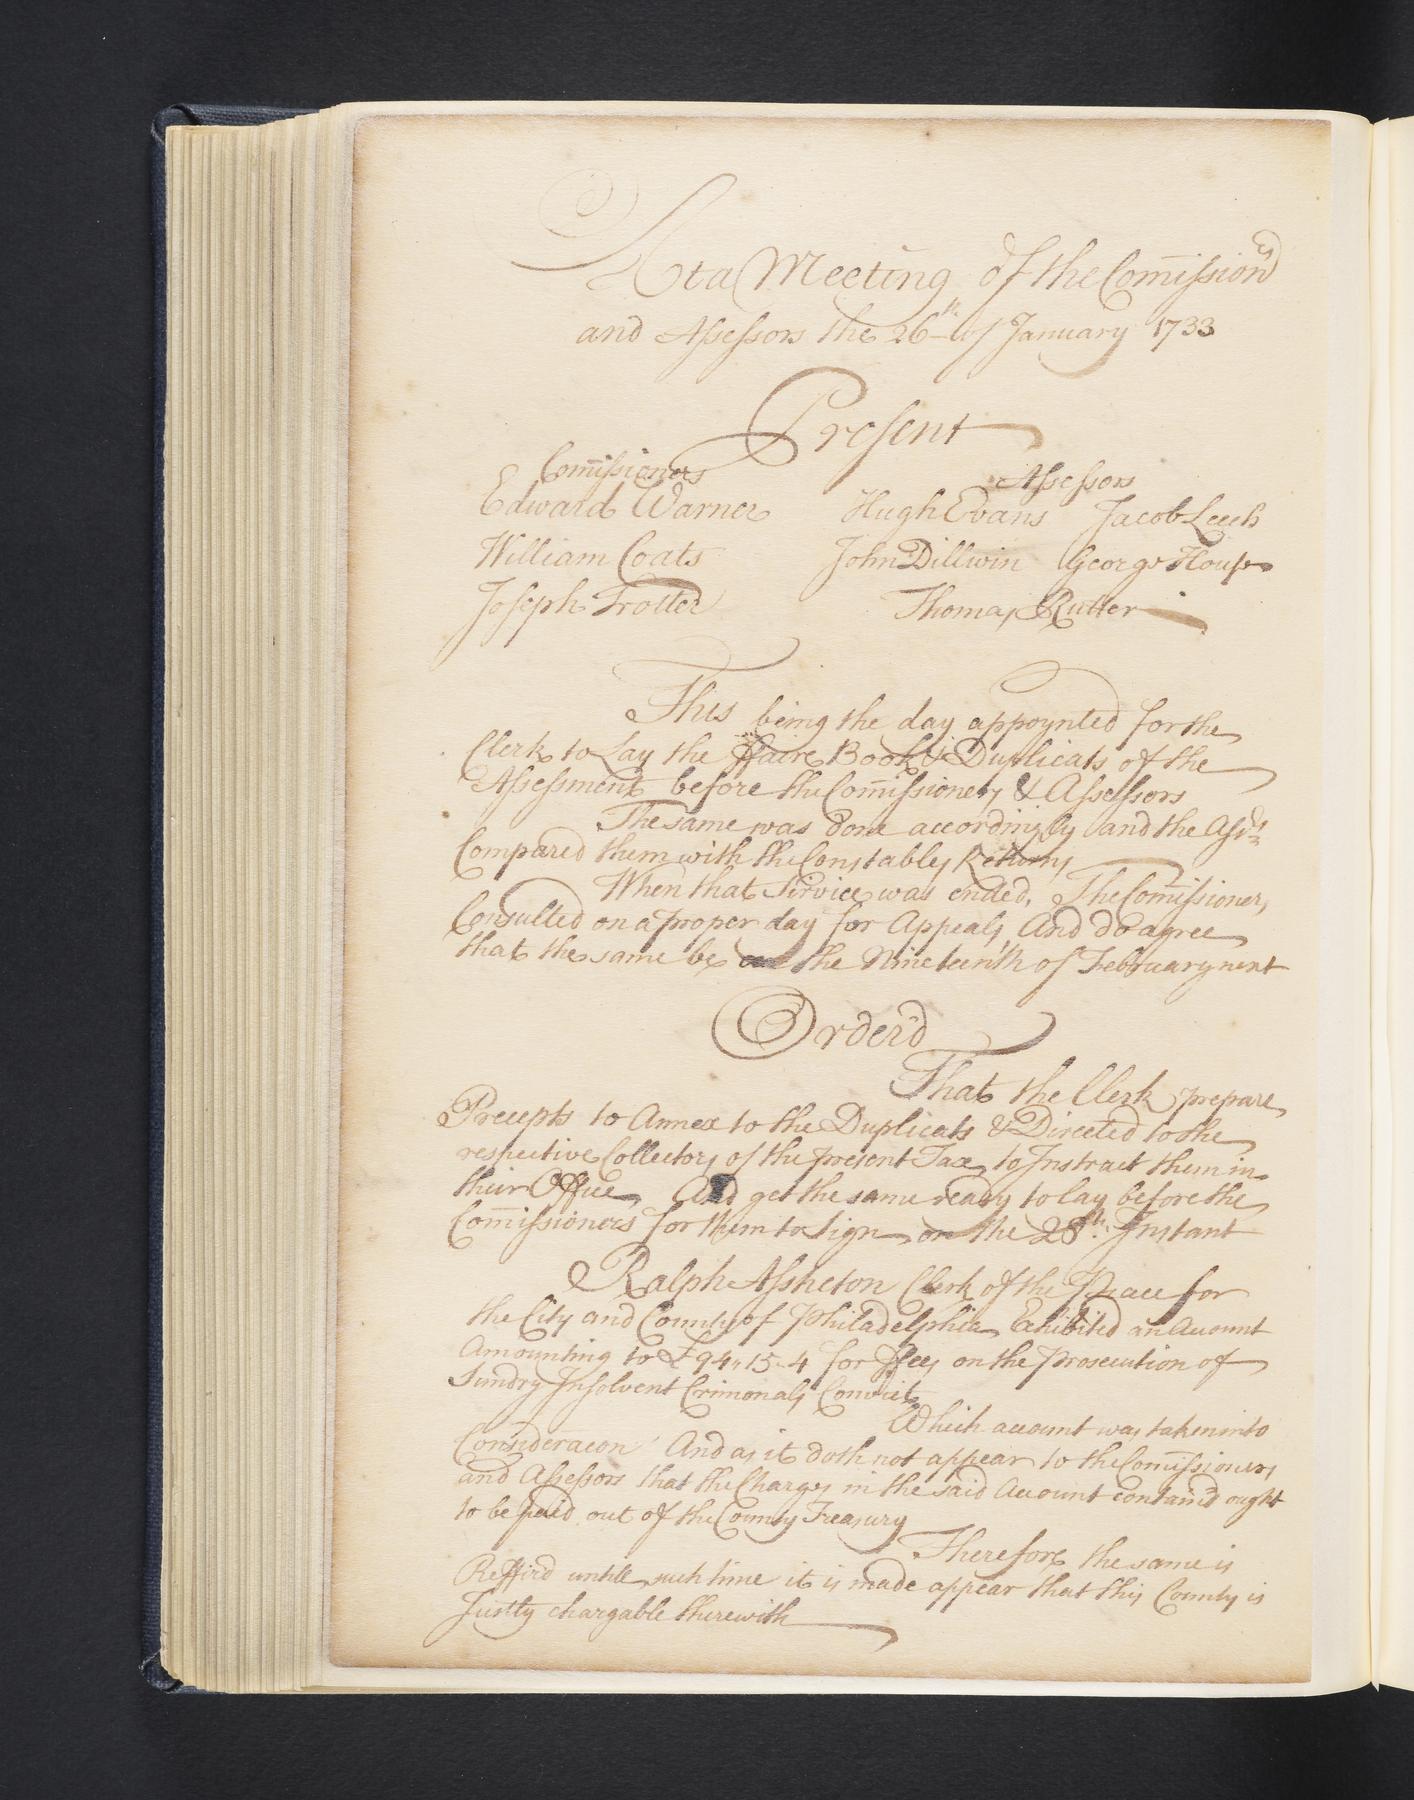 At a Meeting of the Com̄ission.rs
and Assessors the 26th of January 1733
Present
Com̄issioners Assessors
Edward Warner Hugh Evans Jacob Leech
William Coats John Dillwin George House
Joseph Trotter Thomas Rutter
This being the day appoynted for the
Clerk to Lay the ffaire Book & Duplicats of the
Assessment before the Com̄issioners & Assessors
The same was done accordingly and the Assrs
Compared them with the Constables Returns
When that Service was ended, The Com̄issioners
Consulted on a proper day for Appeals And do agree
that the same be on the Nineteenth of February next
Order'd
That the Clerk prepare
Precepts to Annex to the Duplicats & Directed to the
respective Collectors of the present Tax to Instruct them in
their Office, And get the same ready to lay before the
Com̄issioners for them to Sign on the 28th Instant
Ralph Assheton Clerk of the Peace for
the City and County of Philadelphia Exhibited an Account
Amounting to £94,,15,,4 for ffees on the Prosecution of
Sundry Insolvent Crimonals Convict
Which account was taken into
Consideracon And as it doth not appear to the Com̄issioners
and Assessors that the Charges in the said Account contain'd ought
to be paid out of the County Treasury
Therefore the same is
Refferd untill such time it is made appear that this County is
Justly chargable therewith